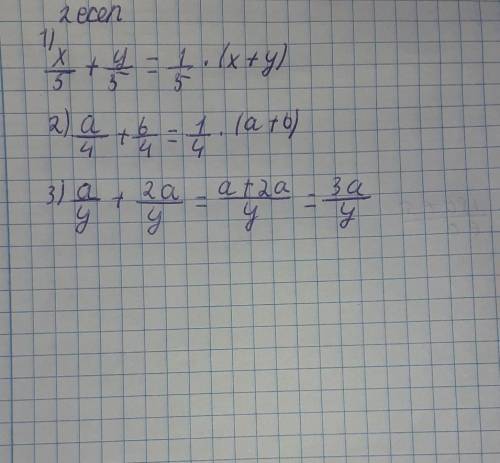 2 есеп
1) x/5 + y/5 = 1/5 · (x+y)
2) a/4 + b/4 = 1/4 · (a+b)
3) a/y + 2a/y = a+2a/y = 3a/y